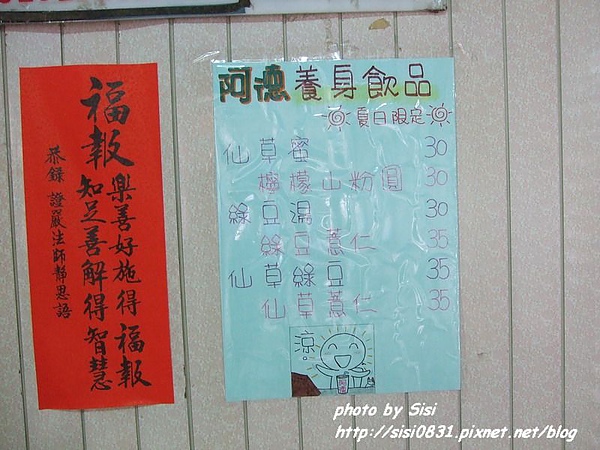 福報
樂善好施得福報
知足善解得智慧
恭錄 證嚴法師靜思語
阿德養身飲品
夏日限定
仙草蜜 30
檸檬山粉圓 30
綠豆湯 30
綠豆薏仁 35
仙草綠豆 35
仙草薏仁 35
涼。
photo by Sisi
http://sisi0831.pixnet.net/blog